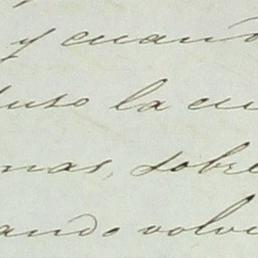 y cuand
uso la cu
nas, sobre
ando volvi